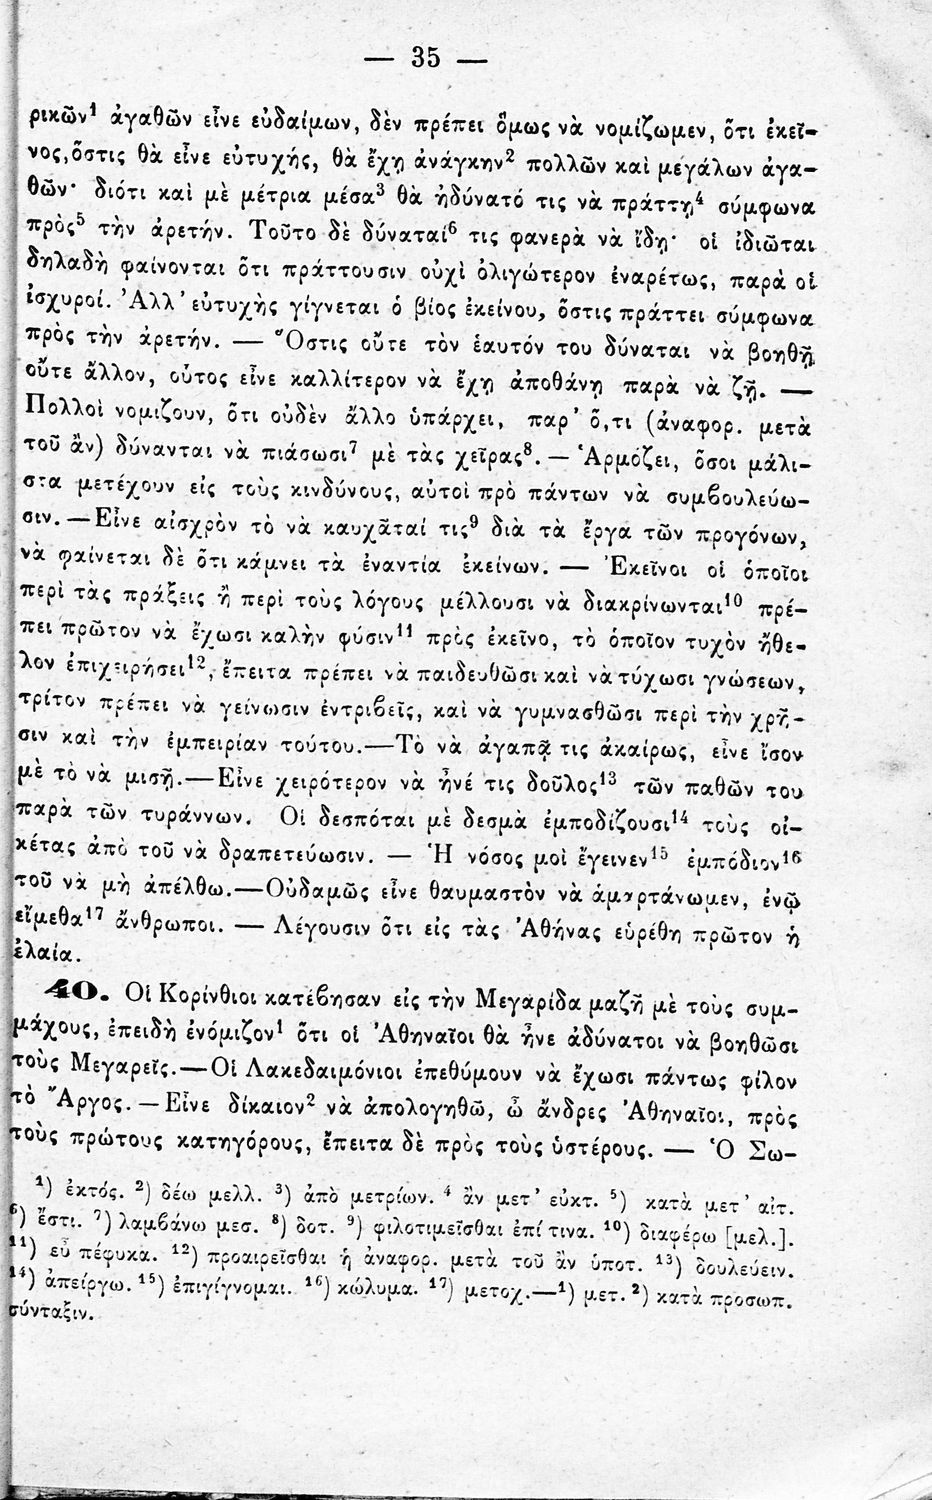 — 35 —
ρικῶν¹ ἀγαθῶν εἶνε εὐδαίμων, δὲν πρέπει ὅμως νὰ νομίζωμεν, ὅτι ἐκεῖ-
νος, ὅστις θὰ εἶνε εὐτυχής, θὰ ἔχῃ ἀνάγκην² πολλῶν καὶ μεγάλων ἀγα-
θῶν· διότι καὶ μὲ μέτρια μέσα³ θὰ ἠδύνατό τις νὰ πράττῃ⁴ σύμφωνα
πρὸς⁵ τὴν ἀρετήν. Τοῦτο δὲ δύναταί⁶ τις φανερὰ νὰ ἴδῃ· οἱ ἰδιῶται
δηλαδὴ φαίνονται ὅτι πράττουσιν οὐχὶ ὀλιγώτερον ἐναρέτως, παρὰ οἱ
ἰσχυροί. Ἀλλ' εὐτυχὴς γίγνεται ὁ βίος ἐκείνου, ὅστις πράττει σύμφωνα
πρὸς τὴν ἀρετήν. — Ὅστις οὔτε τὸν ἑαυτόν του δύναται νὰ βοηθῇ,
οὔτε ἄλλον, οὗτος εἶνε καλλίτερον νὰ ἔχῃ ἀποθάνῃ παρὰ νὰ ζῇ. —
Πολλοὶ νομιζουν, ὅτι οὐδὲν ἄλλο ὑπάρχει, παρ' ὅ,τι (ἀναφορ. μετὰ
τοῦ ἂν) δύνανται νὰ πιάσωσι⁷ μὲ τὰς χεῖρας⁸. — Ἁρμόζει, ὅσοι μάλι-
στα μετέχουν εἰς τοὺς κινδύνους, αὐτοὶ πρὸ πάντων νὰ συμβουλεύω-
σιν. — Εἶνε αἰσχρὸν τὸ νὰ καυχᾶταί τις⁹ διὰ τὰ ἔργα τῶν προγόνων,
νὰ φαίνεται δὲ ὅτι κάμνει τὰ ἐναντία ἐκείνων. — Ἐκεῖνοι οἱ ὁποῖοι
περὶ τὰς πράξεις ἢ περὶ τοὺς λόγους μέλλουσι νὰ διακρίνωνται¹⁰ πρέ-
πει πρῶτον νὰ ἔχωσι καλὴν φύσιν¹¹ πρὸς ἐκεῖνο, τὸ ὁποῖον τυχὸν ἤθε-
λον ἐπιχειρήσει¹², ἔπειτα πρέπει νὰ παιδευθῶσι καὶ νὰ τύχωσι γνώσεων,
τρίτον πρέπει νὰ γείνωσιν ἐντριβεῖς, καὶ νὰ γυμνασθῶσι περὶ τὴν χρῆ-
σιν καὶ τὴν ἐμπειρίαν τούτου. — Τὸ νὰ ἀγαπᾷ τις ἀκαίρως, εἶνε ἴσον
μὲ τὸ νὰ μισῇ. — Εἶνε χειρότερον νὰ ᾖνέ τις δοῦλος¹³ τῶν παθῶν του
παρὰ τῶν τυράννων. Οἱ δεσπόται μὲ δεσμὰ ἐμποδίζουσι¹⁴ τοὺς οἰ-
κέτας ἀπὸ τοῦ νὰ δραπετεύωσιν. — Ἡ νόσος μοὶ ἔγεινεν¹⁵ ἐμπόδιον¹⁶
τοῦ νὰ μὴ ἀπέλθω. — Οὐδαμῶς εἶνε θαυμαστὸν νὰ ἁμαρτάνωμεν, ἐνῷ
εἴμεθα¹⁷ ἄνθρωποι. — Λέγουσιν ὅτι εἰς τὰς Ἀθήνας εὑρέθη πρῶτον ἡ
ἐλαία.
40. Οἱ Κορίνθιοι κατέβησαν εἰς τὴν Μεγαρίδα μαζῆ μὲ τοὺς συμ-
μάχους, ἐπειδὴ ἐνόμιζον¹ ὅτι οἱ Ἀθηναῖοι θὰ ἦνε ἀδύνατοι νὰ βοηθῶσι
τοὺς Μεγαρεῖς. — Οἱ Λακεδαιμόνιοι ἐπεθύμουν νὰ ἔχωσι πάντως φίλον
τὸ Ἄργος. — Εἶνε δίκαιον² νὰ ἀπολογηθῶ, ὦ ἄνδρες Ἀθηναῖοι, πρὸς
τοὺς πρώτους κατηγόρους, ἔπειτα δὲ πρὸς τοὺς ὑστέρους. — Ὁ Σω-
¹) ἐκτός. ²) δέω μελλ. ³) ἀπὸ μετρίων. ⁴ ἂν μετ' εὐκτ. ⁵) κατὰ μετ' αἰτ.
⁶) ἔστι. ⁷) λαμβάνω μεσ. ⁸) δοτ. ⁹) φιλοτιμεῖσθαι ἐπί τινα. ¹⁰) διαφέρω [μελ.].
¹¹) εὖ πέφυκα. ¹²) προαιρεῖσθαι ἡ ἀναφορ. μετὰ τοῦ ἂν ὑποτ. ¹³) δουλεύειν.
¹⁴) ἀπείργω. ¹⁵) ἐπιγίγνομαι. ¹⁶) κώλυμα. ¹⁷) μετοχ. — ¹) μετ. ²) κατὰ προσωπ.
σύνταξιν.